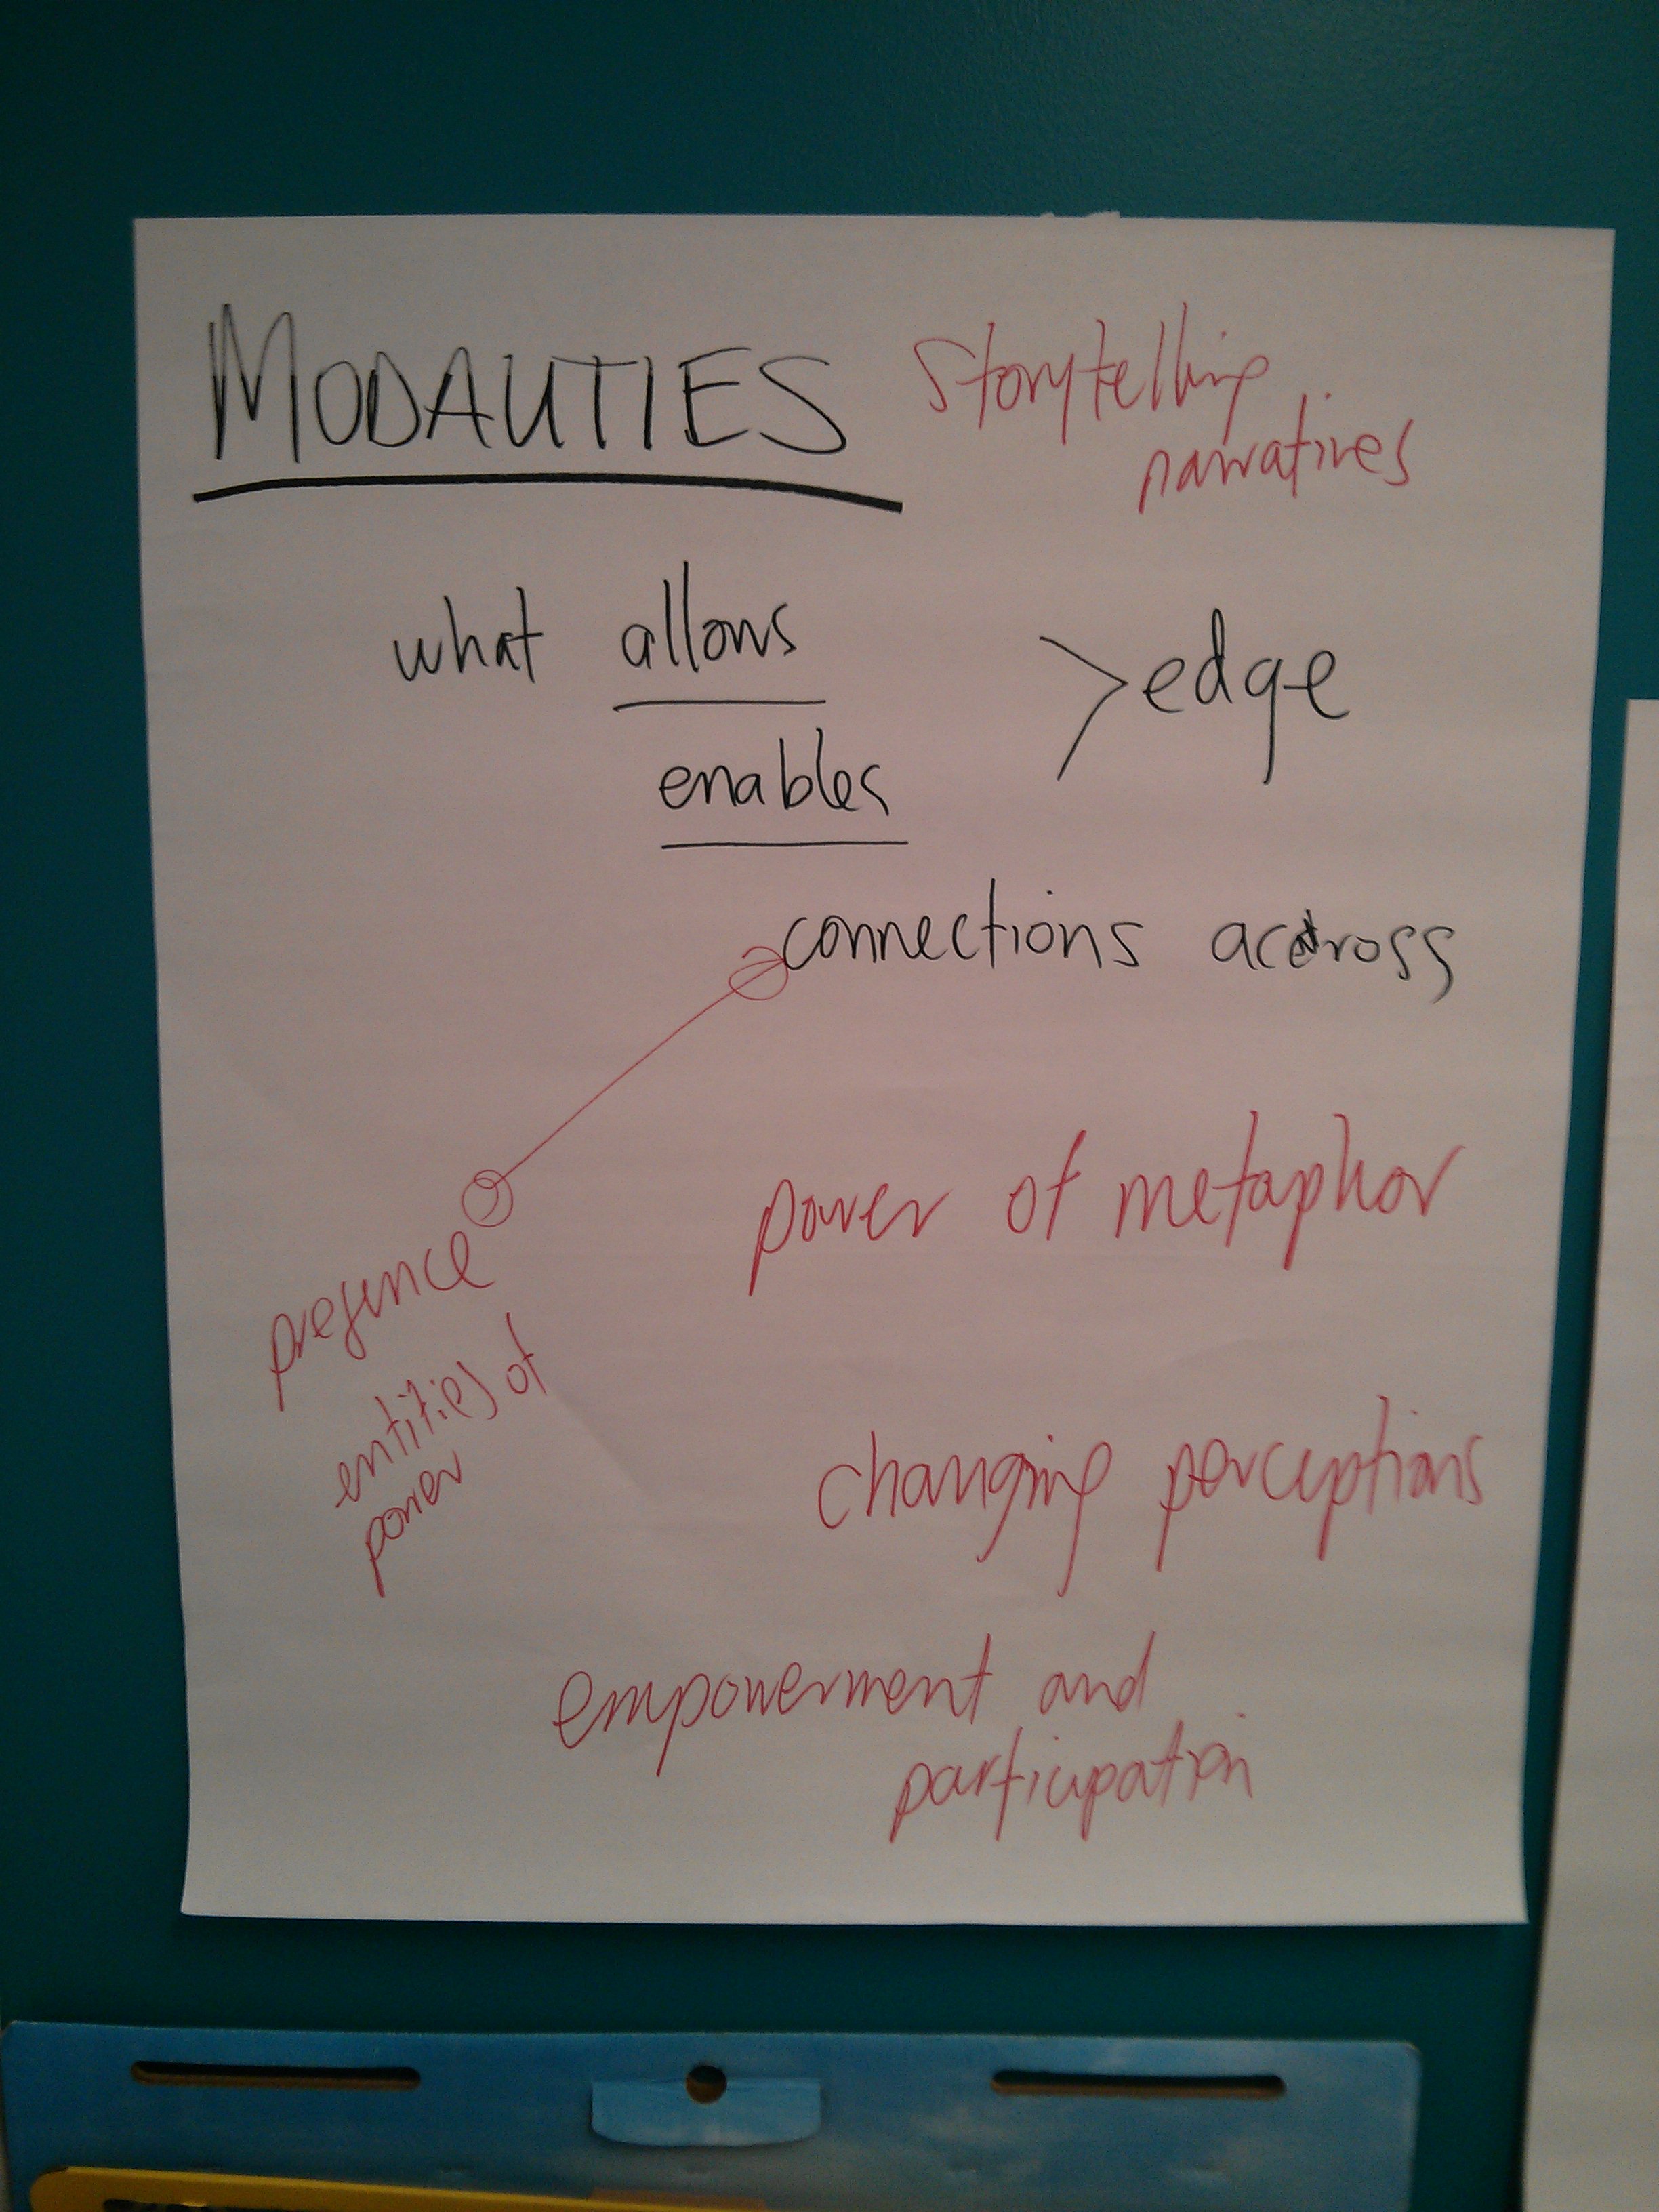 MODALITIES
storytelling
narratives
what allows
> edge
enables
connections across
power of metaphor
presence
entities of
power
changing perceptions
empowerment and
participation